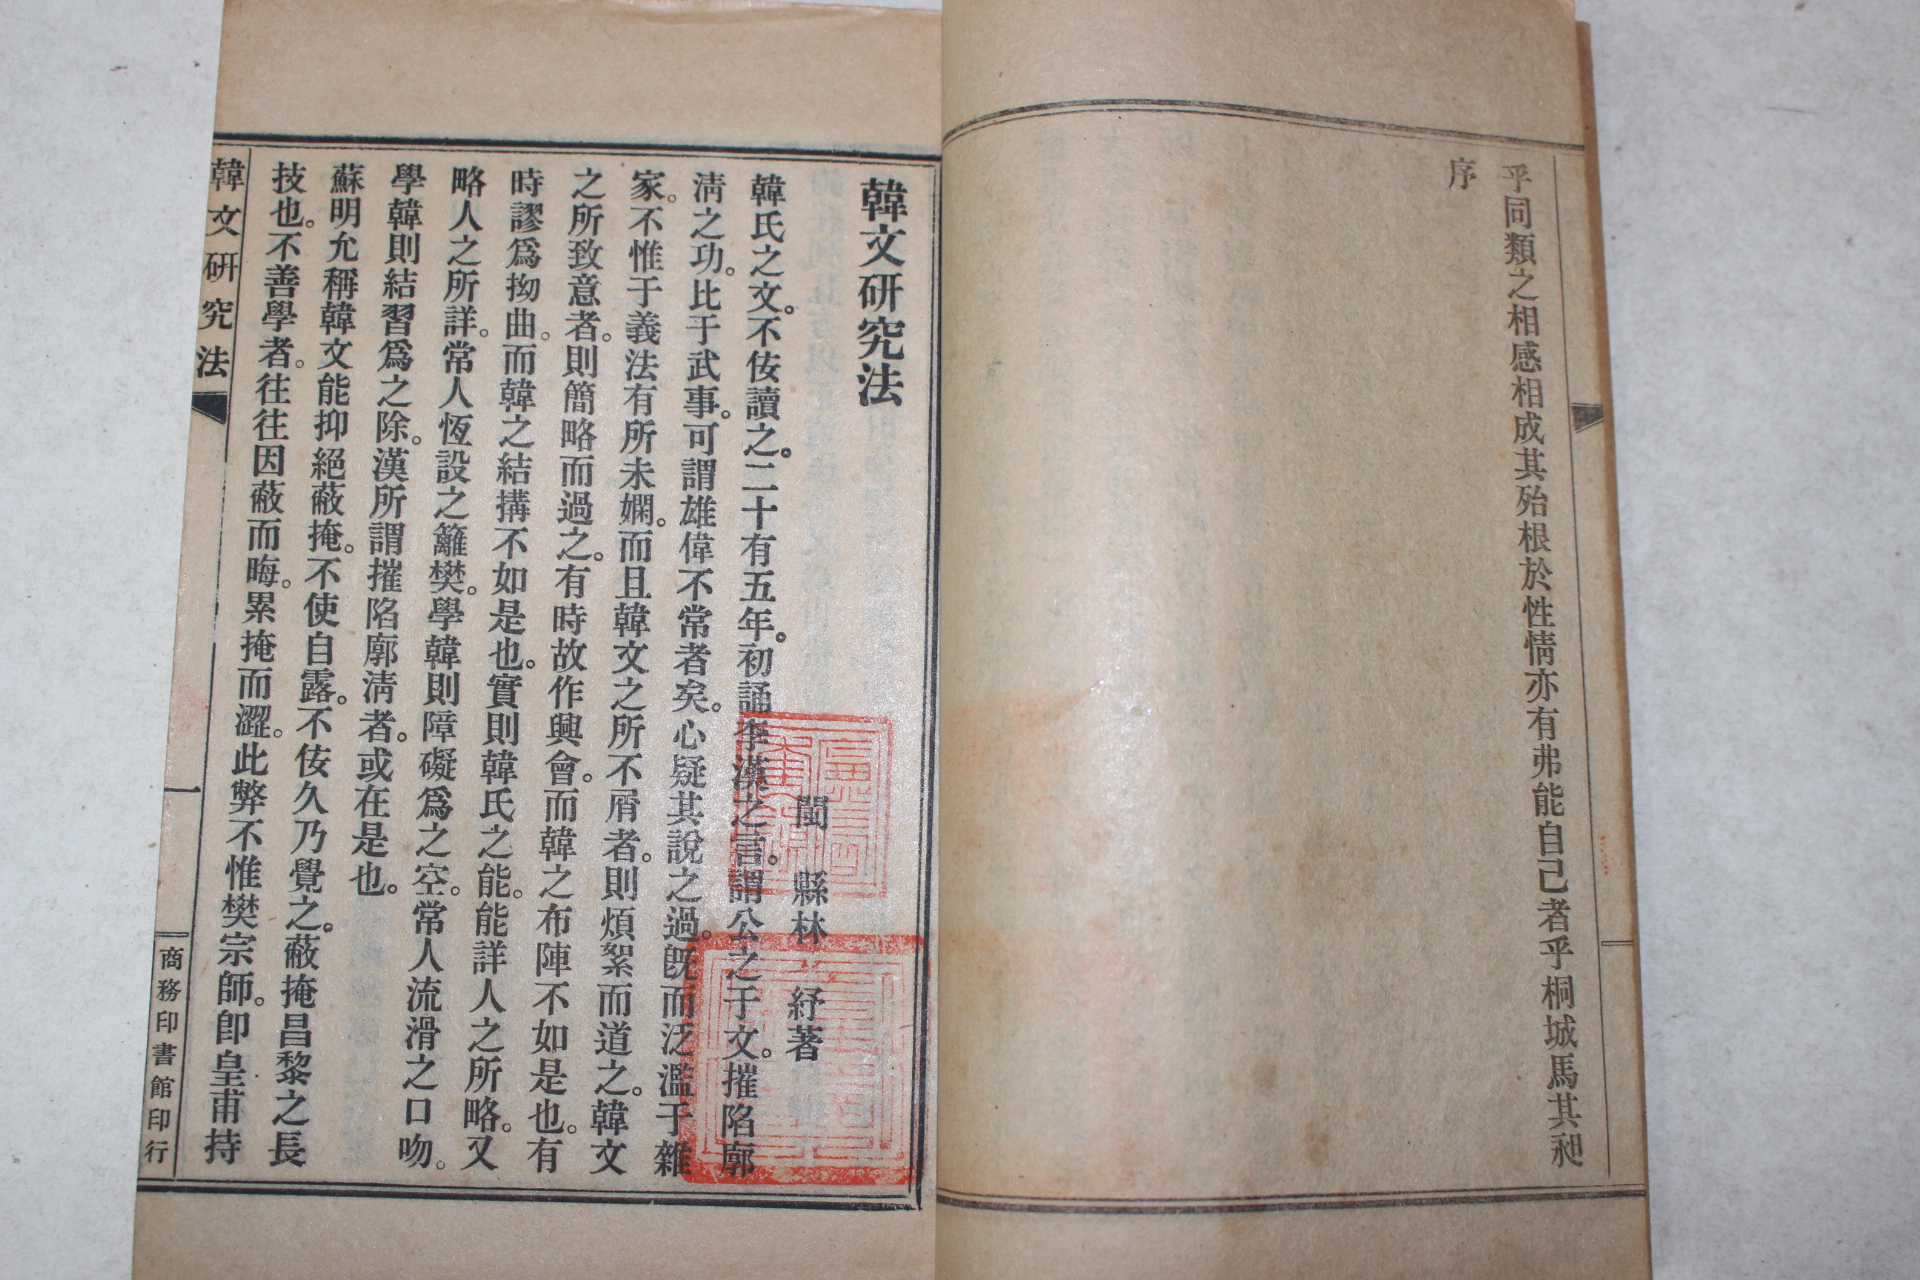 乎同類之相感相成其殆根於性情亦有弗能自己者乎桐城馬其昶
序
韓文研究法
閩縣林紓著
韓氏之文。不佞讀之。二十有五年。初誦李漢之言。謂公之于文。摧陷廓
淸之功。比于武事。可謂雄偉不常者矣。心疑其說之過。旣而泛濫于雜
家。不惟于義法有所未嫻。而且韓文之所不屑者。則煩絮而道之。韓文
之所致意者。則簡略而過之。有時故作興會。而韓之布陣不如是也。有
時謬爲拗曲。而韓之結搆不如是也。實則韓氏之能。能詳人之所略。又
略人之所詳。常人恆設之籬樊。學韓則障礙爲之空。常人流滑之口吻。
學韓則結習爲之除。漢所謂摧陷廓淸者。或在是也。
蘇明允稱韓文能抑絕蔽掩。不使自露。不佞久乃覺之。蔽掩昌黎之長
技也。不善學者。往往因蔽而晦。累掩而澀。此弊不惟樊宗師。卽皇甫持
韓文研究法
一
商務印書館印行